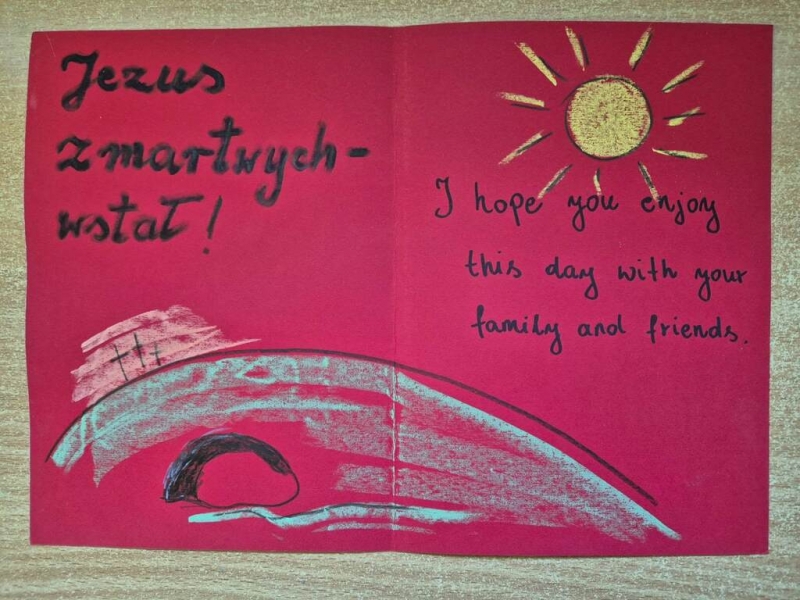 Jezus
zmartwych-
wstał!
I hope you enjoy
this day with your
family and friends.